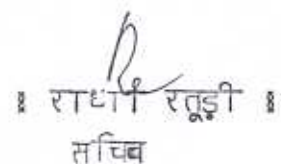 ॥ राधा रतूड़ी ॥
सचिव